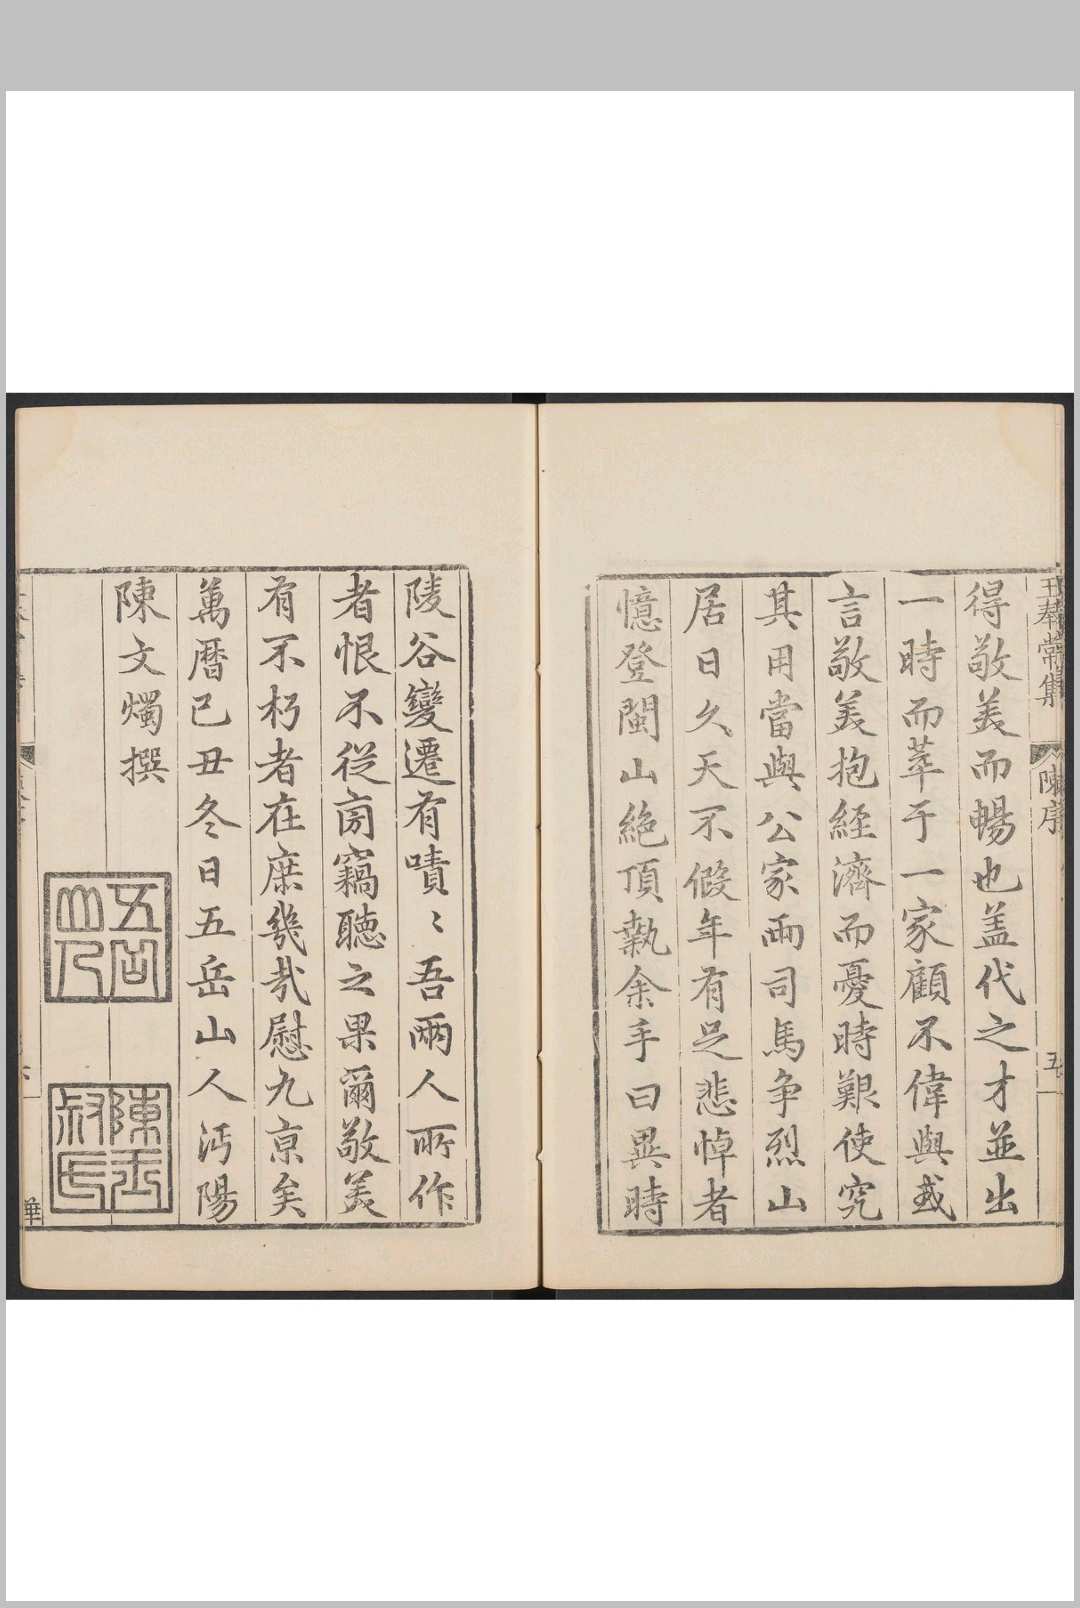 王奉常集
陳序
五
得敬美而暢也蓋代之才並出
一時而萃于一家顧不偉與或
言敬美抱經濟而憂時艱使究
其用當與公家兩司馬争烈山
居日久天不假年有足悲悼者
憶登閩山絶頂執余手曰異時
陵谷變遷有嘖〻吾兩人所作
者恨不從旁竊聽之果爾敬美
有不朽者在庶幾哉慰九京矣
萬曆己丑冬日五岳山人沔陽
陳文燭撰
五岳山人
陳玉叔氏